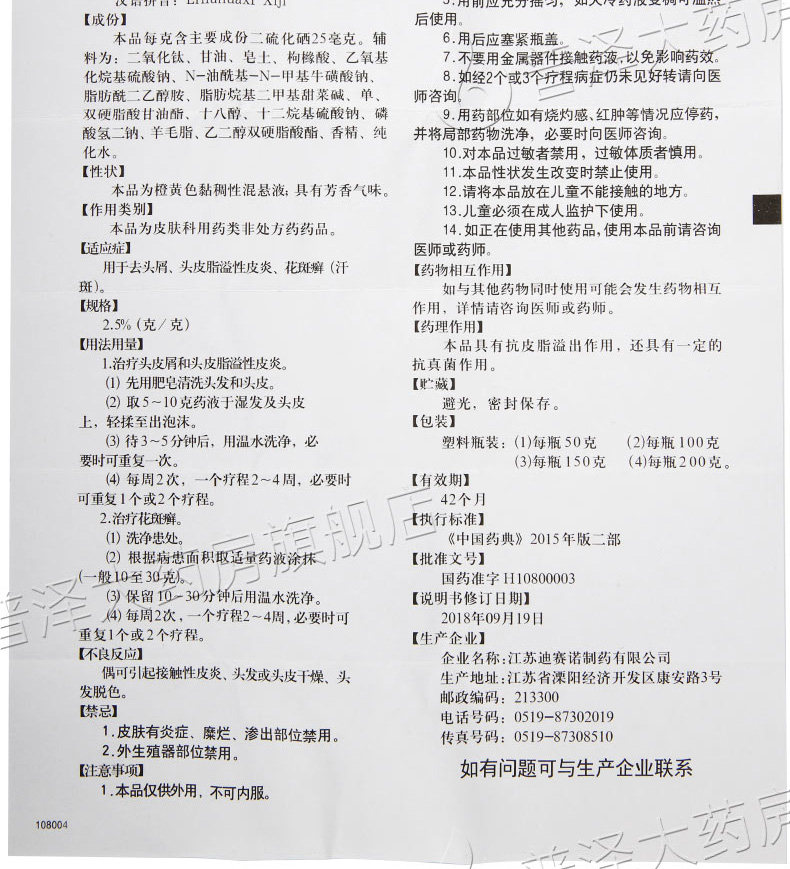 汉语拼音：Erliuhuaxi Xiji
【成份】
本品每克含主要成份二硫化硒25毫克。辅
料为：二氧化钛、甘油、皂土、枸橼酸、乙氧基
化烷基硫酸钠、N-油酰基-N-甲基牛磺酸钠、
脂肪酰二乙醇胺、脂肪烷基二甲基甜菜碱、单、
双硬脂酸甘油酯、十八醇、十二烷基硫酸钠、磷
酸氢二钠、羊毛脂、乙二醇双硬脂酸酯、香精、纯
化水。
【性状】
本品为橙黄色黏稠性混悬液；具有芳香气味。
【作用类别】
本品为皮肤科用药类非处方药药品。
【适应症】
用于去头屑、头皮脂溢性皮炎、花斑癣（汗
斑）。
【规格】
2.5%（克／克）
【用法用量】
1.治疗头皮屑和头皮脂溢性皮炎。
⑴ 先用肥皂清洗头发和头皮。
⑵ 取5～10克药液于湿发及头皮
上，轻揉至出泡沫。
⑶ 待3～5分钟后，用温水洗净，必
要时可重复一次。
⑷ 每周2次，一个疗程2～4周，必要时
可重复1个或2个疗程。
2.治疗花斑癣。
⑴ 洗净患处。
⑵ 根据病患面积取适量药液涂抹
（一般10至30克）。
⑶ 保留10～30分钟后用温水洗净。
⑷ 每周2次，一个疗程2～4周，必要时可
重复1个或2个疗程。
【不良反应】
偶可引起接触性皮炎、头发或头皮干燥、头
发脱色。
【禁忌】
1.皮肤有炎症、糜烂、渗出部位禁用。
2.外生殖器部位禁用。
【注意事项】
1.本品仅供外用，不可内服。
108004
5.用前应充分摇匀，如天冷药液变稠可温热
后使用。
6.用后应塞紧瓶盖。
7.不要用金属器件接触药液，以免影响药效。
8.如经2个或3个疗程病症仍未见好转请向医
师咨询。
9.用药部位如有烧灼感、红肿等情况应停药，
并将局部药物洗净，必要时向医师咨询。
10.对本品过敏者禁用，过敏体质者慎用。
11.本品性状发生改变时禁止使用。
12.请将本品放在儿童不能接触的地方。
13.儿童必须在成人监护下使用。
14.如正在使用其他药品，使用本品前请咨询
医师或药师。
【药物相互作用】
如与其他药物同时使用可能会发生药物相互
作用，详情请咨询医师或药师。
【药理作用】
本品具有抗皮脂溢出作用，还具有一定的
抗真菌作用。
【贮藏】
避光，密封保存。
【包装】
塑料瓶装：⑴每瓶50克 ⑵每瓶100克
⑶每瓶150克 ⑷每瓶200克。
【有效期】
42个月
【执行标准】
《中国药典》2015年版二部
【批准文号】
国药准字H10800003
【说明书修订日期】
2018年09月19日
【生产企业】
企业名称：江苏迪赛诺制药有限公司
生产地址：江苏省溧阳经济开发区康安路3号
邮政编码：213300
电话号码：0519-87302019
传真号码：0519-87308510
如有问题可与生产企业联系
普泽大药房
普泽大药房旗舰店
普泽大药房